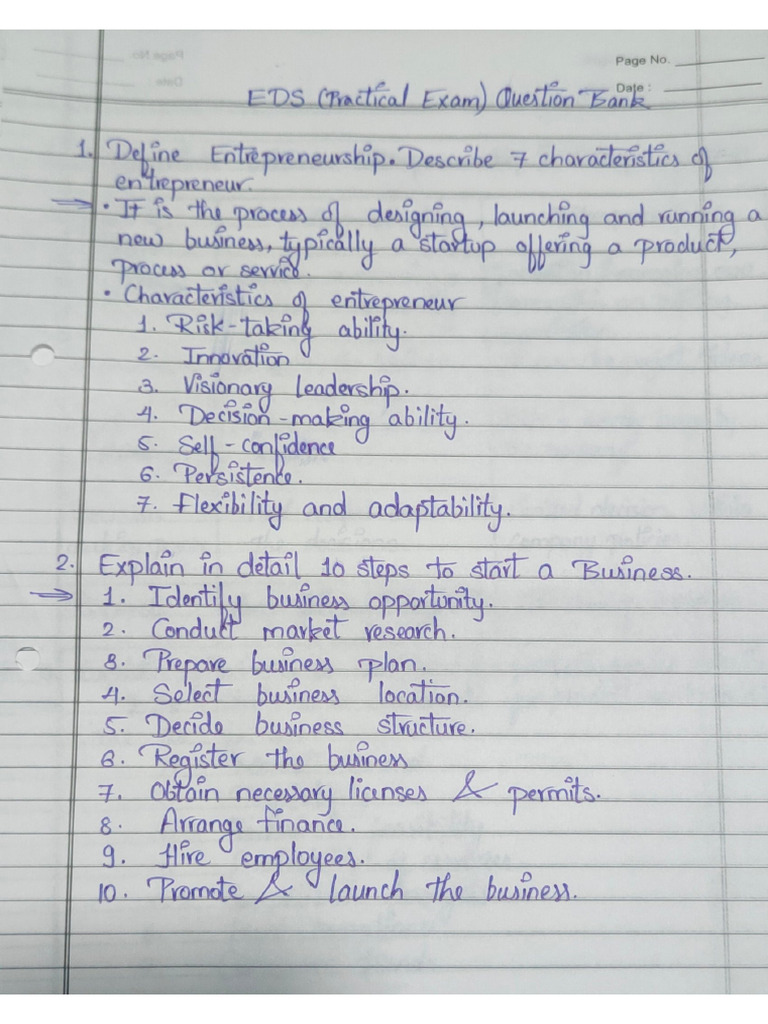 Page No.
Date:
EDS (Practical Exam) Question Bank
1. Define Entrepreneurship. Describe 7 characteristics of
entrepreneur.
→ • It is the process of designing, launching and running a
new business, typically a startup offering a product,
process or service.
• Characteristics of entrepreneur
1. Risk-taking ability.
2. Innovation
3. Visionary leadership.
4. Decision-making ability.
5. Self-confidence
6. Persistence.
7. Flexibility and adaptability.
2. Explain in detail 10 steps to start a Business.
→ 1. Identify business opportunity.
2. Conduct market research.
3. Prepare business plan.
4. Select business location.
5. Decide business structure.
6. Register the business
7. Obtain necessary licenses & permits.
8. Arrange finance.
9. Hire employees.
10. Promote & launch the business.